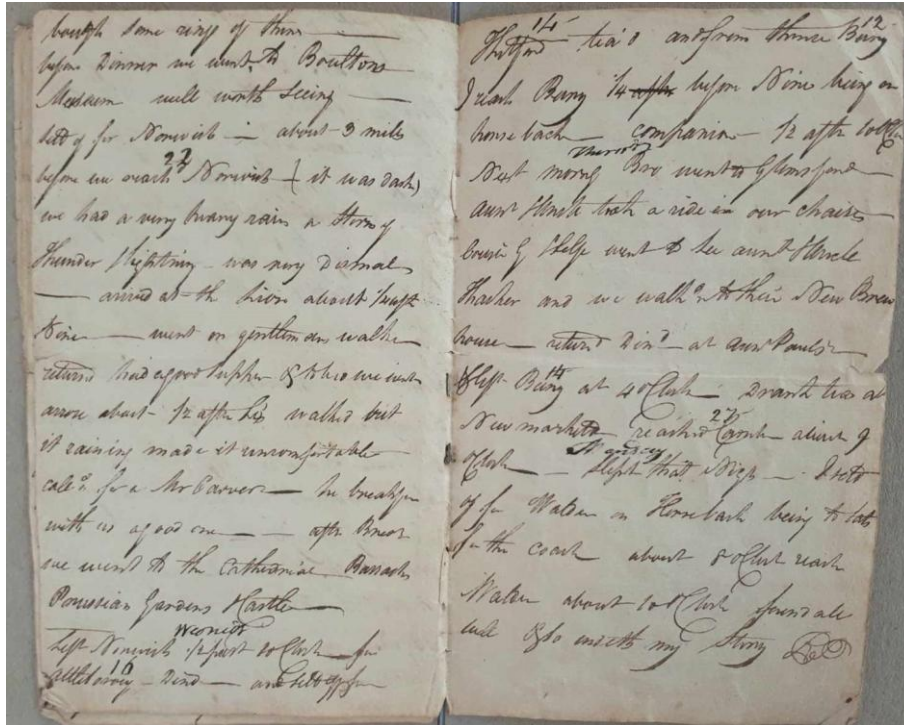 bough some ring of them
before Dinner we went to Boultons
Museum well worth seeing
sett of for Norwich - about 3 miles
22
before we reach Norwich (it was dark)
we had a very heavy rain a Storm of
thunder & lightning - was very Dismal
arrived at the about 1/4 aft
Nine went on gentlemans walk
return'd had a good supper & to bed we went
arose about 1/2 after Six walked but
it raining made it uncomfortable
call'd for a Mr Carver he breakfn
with us a good one after Breat
we went to the Cathedrial Barracks
Gardens & Castle
Wednesdy
Left Norwich 1/2 past 10 oClock for
16
Attlebory - Dind and sett off for
14 12
Thetford tea'd and from thence Bury
I reach Bury 1/4 after before Nine being on
horseback companion 1/2 after 10 oClock
Thursday
Next morng Bro went to Glemsford
aunt & Uncle took a ride in our chaise
& Self went to see aunt & Uncle
Thacker and we walk'd to their New Brew
house return'd Din'd at aunt Pauls
14
& left Bury at 4 oClock Drank tea at
27
Newmarket reached Camb about 9
oClock slept that Nigh & sett
of for Walden on Horseback being to late
for the coach about 8 oClock reach
Walden about 10 oClock found all
well & so endeth my Story